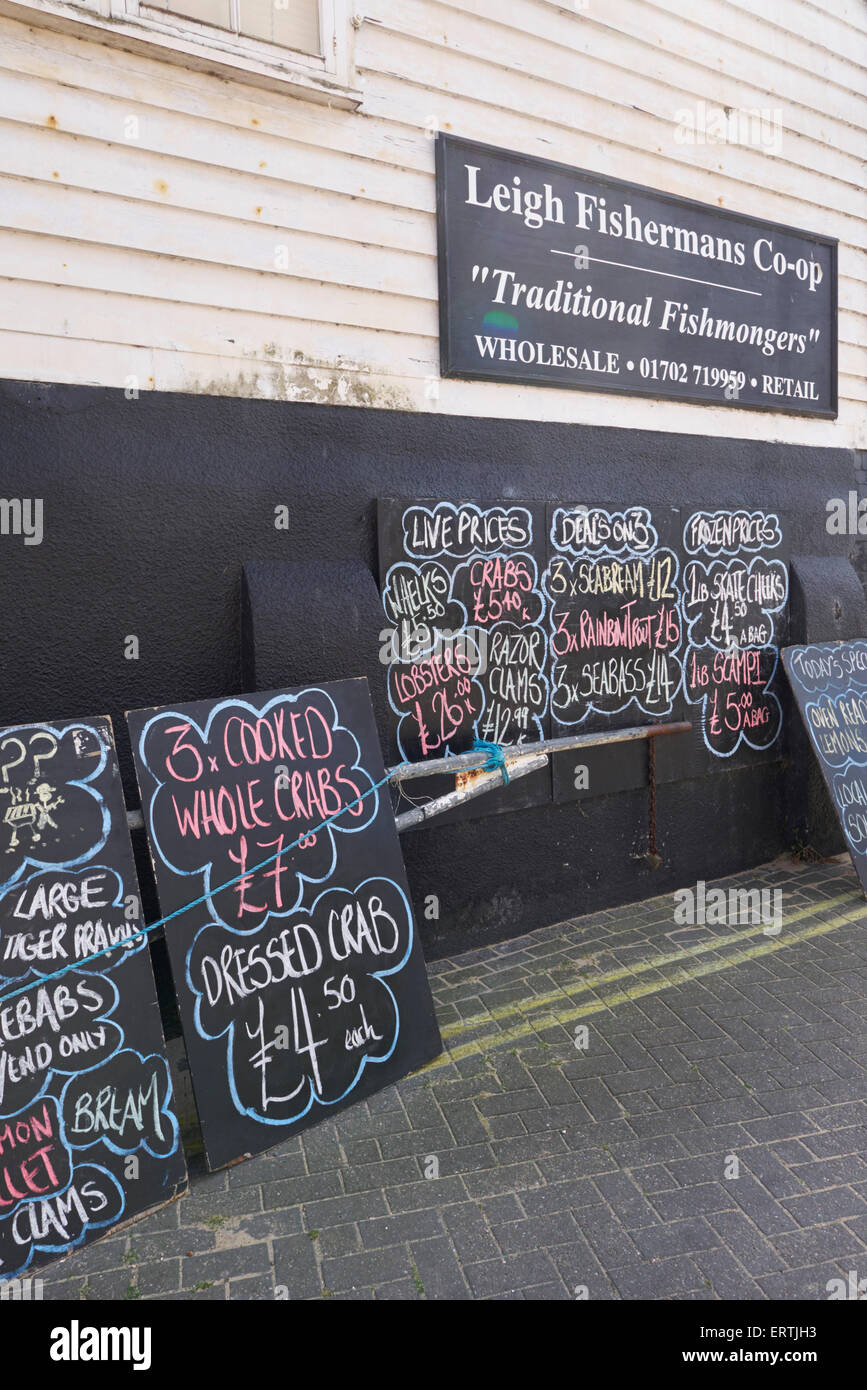 Leigh Fishermans Co-op
"Traditional Fishmongers"
WHOLESALE • 01702 719959 • RETAIL
LIVE PRICES
WHELKS
CRABS
£5.40 K
LOBSTERS
£26.00 K
RAZOR
CLAMS
£12.99
K
DEAL'S ON 3
3 x SEABREAM £12
3 x RAINBOW TROUT £15
3 x SEABASS £14
FROZEN PRICES
1lB SKATE CHEEKS
£4.50
A BAG
1lB SCAMPI
£5.00
A BAG
TODAY'S
OVEN
LEMON
LOCAL
3 x COOKED
WHOLE CRABS
£7.00
DRESSED CRAB
£4.50
each
??
LARGE
TIGER PRAWNS
KEBABS
ONLY
BREAM
CLAMS
alamy
alamy
Image ID: ERTJH3
www.alamy.com